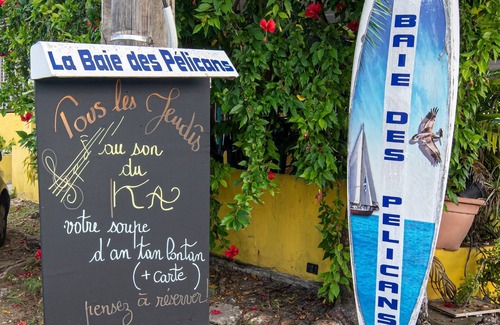 La Baie des Pélicans
Tous les Jeudis
au son
du
KA
votre soupe
d'an tan lontan
(+ carte)
pensez à réserver
BAIE DES PÉLICANS